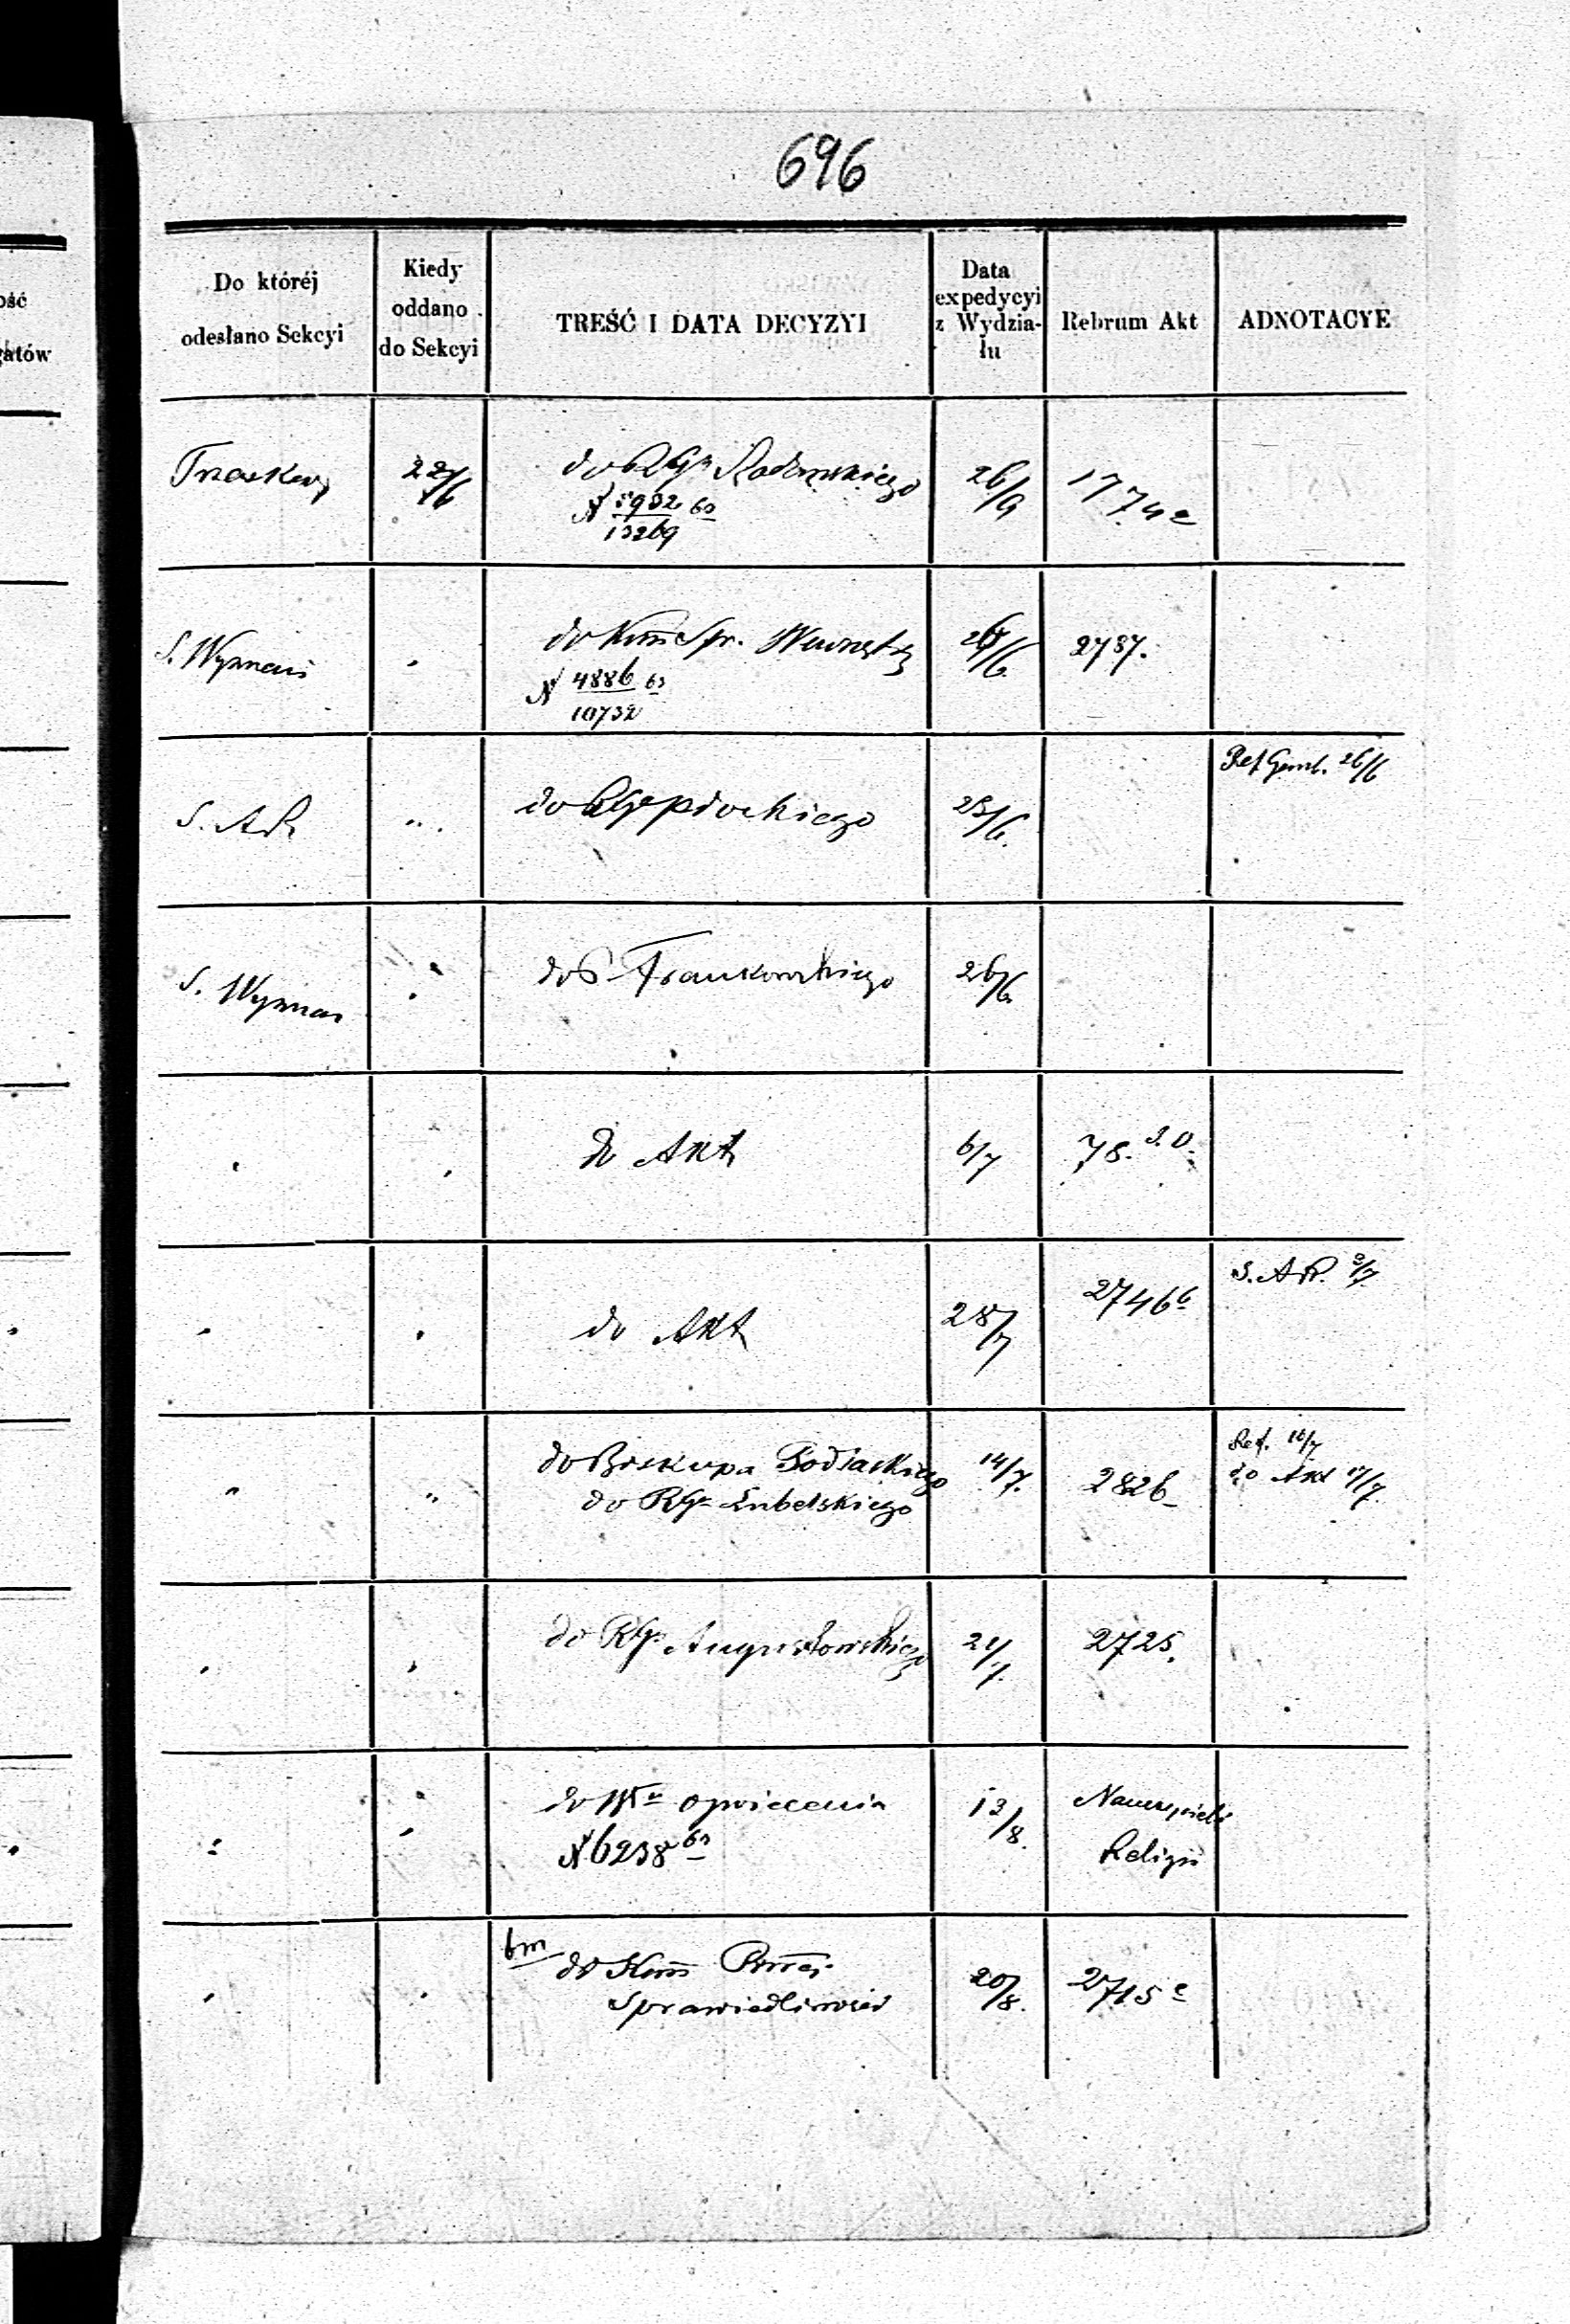 696
ość
gatów
Do któréj odesłano Sekcyi
Kiedy oddano do Sekcyi
TREŚĆ I DATA DECYZYI
Data expedycyi z Wydzia-łu
Rebrum Akt
ADNOTACYE
22/6 do RGu Radomskiego 26/9 1774 2
13269
S. Wyznań do Kom Spr. Wewnętrz 2787.
N 4886 63
10732
Ref Gent. 26/6
S. A R „ do RGo Płockiego 25/6.
S. Wyznań do P. Frankowskiego 26/6
do Akt 6/7 78.
S. AR. 2/7
do Akt 28/7 2746
Ref. 16/7
„ „ do Biskupa Podlaskiego 14/7. 2826 do Akt 17/7
do RGo Lubelskiego
do RGo Augustowskiego 21/7. 2725.
do Wu Oświecenia 13/8. Nauczyciele
N 6238 63 Religii
bm
do Kom 20/8. 2715 c
Sprawiedliwości